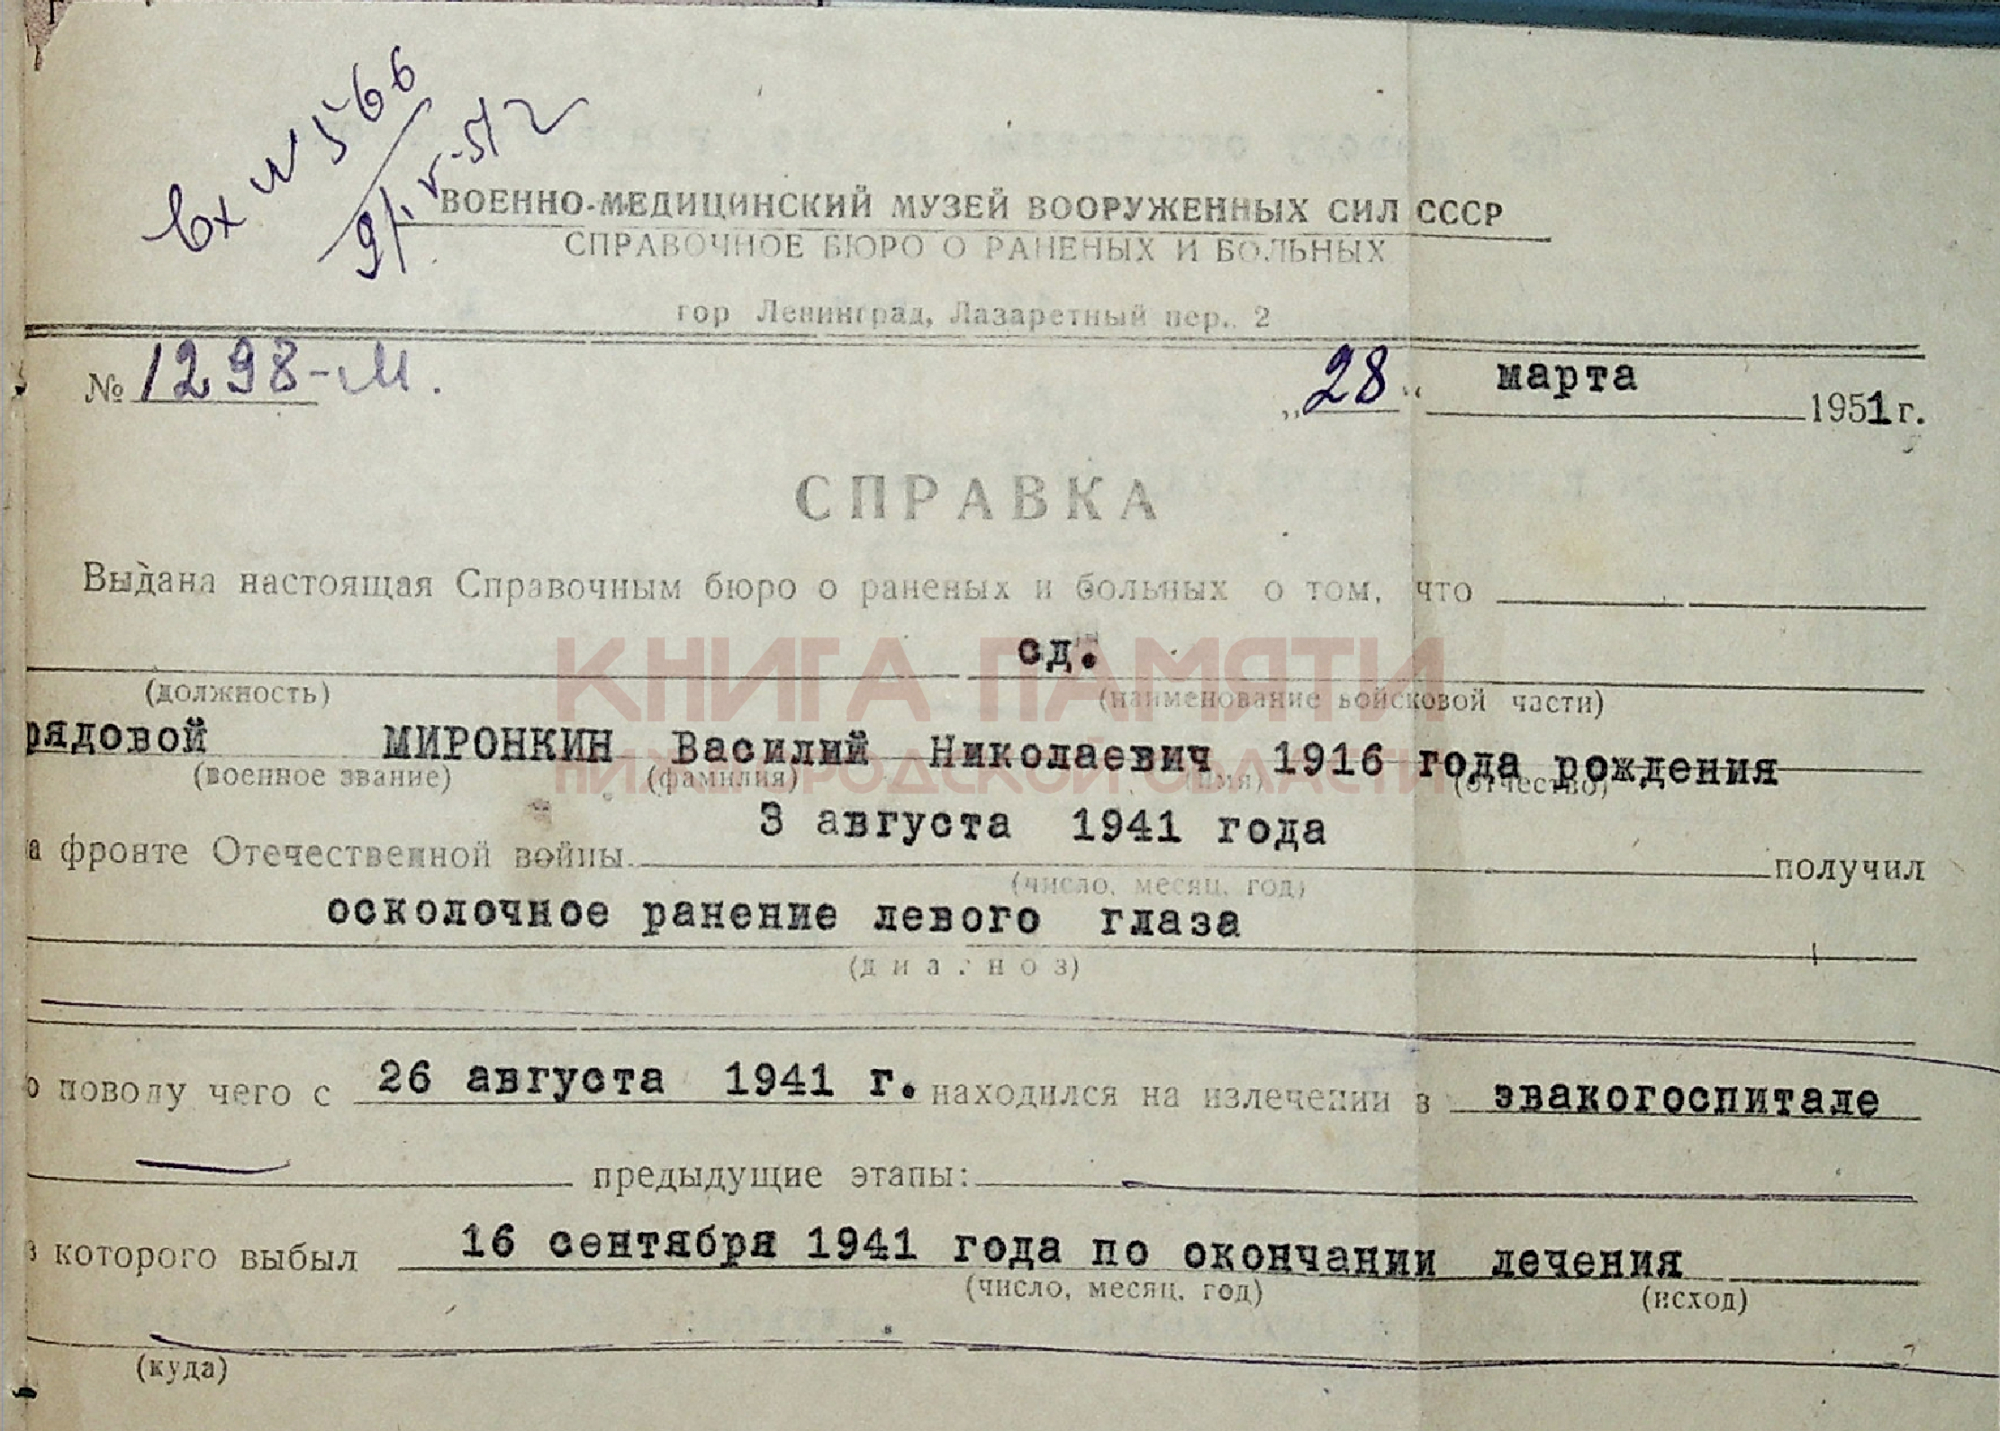 вх № 566
9/V-51
ВОЕННО-МЕДИЦИНСКИЙ МУЗЕЙ ВООРУЖЕННЫХ СИЛ СССР
СПРАВОЧНОЕ БЮРО О РАНЕНЫХ И БОЛЬНЫХ
гор Ленинград, Лазаретный пер., 2
№ 1298-М. „28“ марта 1951 г.
СПРАВКА
Выдана настоящая Справочным бюро о раненых и больных о том, что
сд.
(должность) (наименование войсковой части)
рядовой МИРОНКИН Василий Николаевич 1916 года рождения
(военное звание) (фамилия) (имя) (отчество)
3 августа 1941 года
а фронте Отечественной войны получил
(число, месяц, год)
осколочное ранение левого глаза
(диагноз)
о поводу чего с 26 августа 1941 г. находился на излечении в эвакогоспитале
предыдущие этапы:
з которого выбыл 16 сентября 1941 года по окончании лечения
(число, месяц, год) (исход)
(куда)
КНИГА ПАМЯТИ
НИЖЕГОРОДСКОЙ ОБЛАСТИ